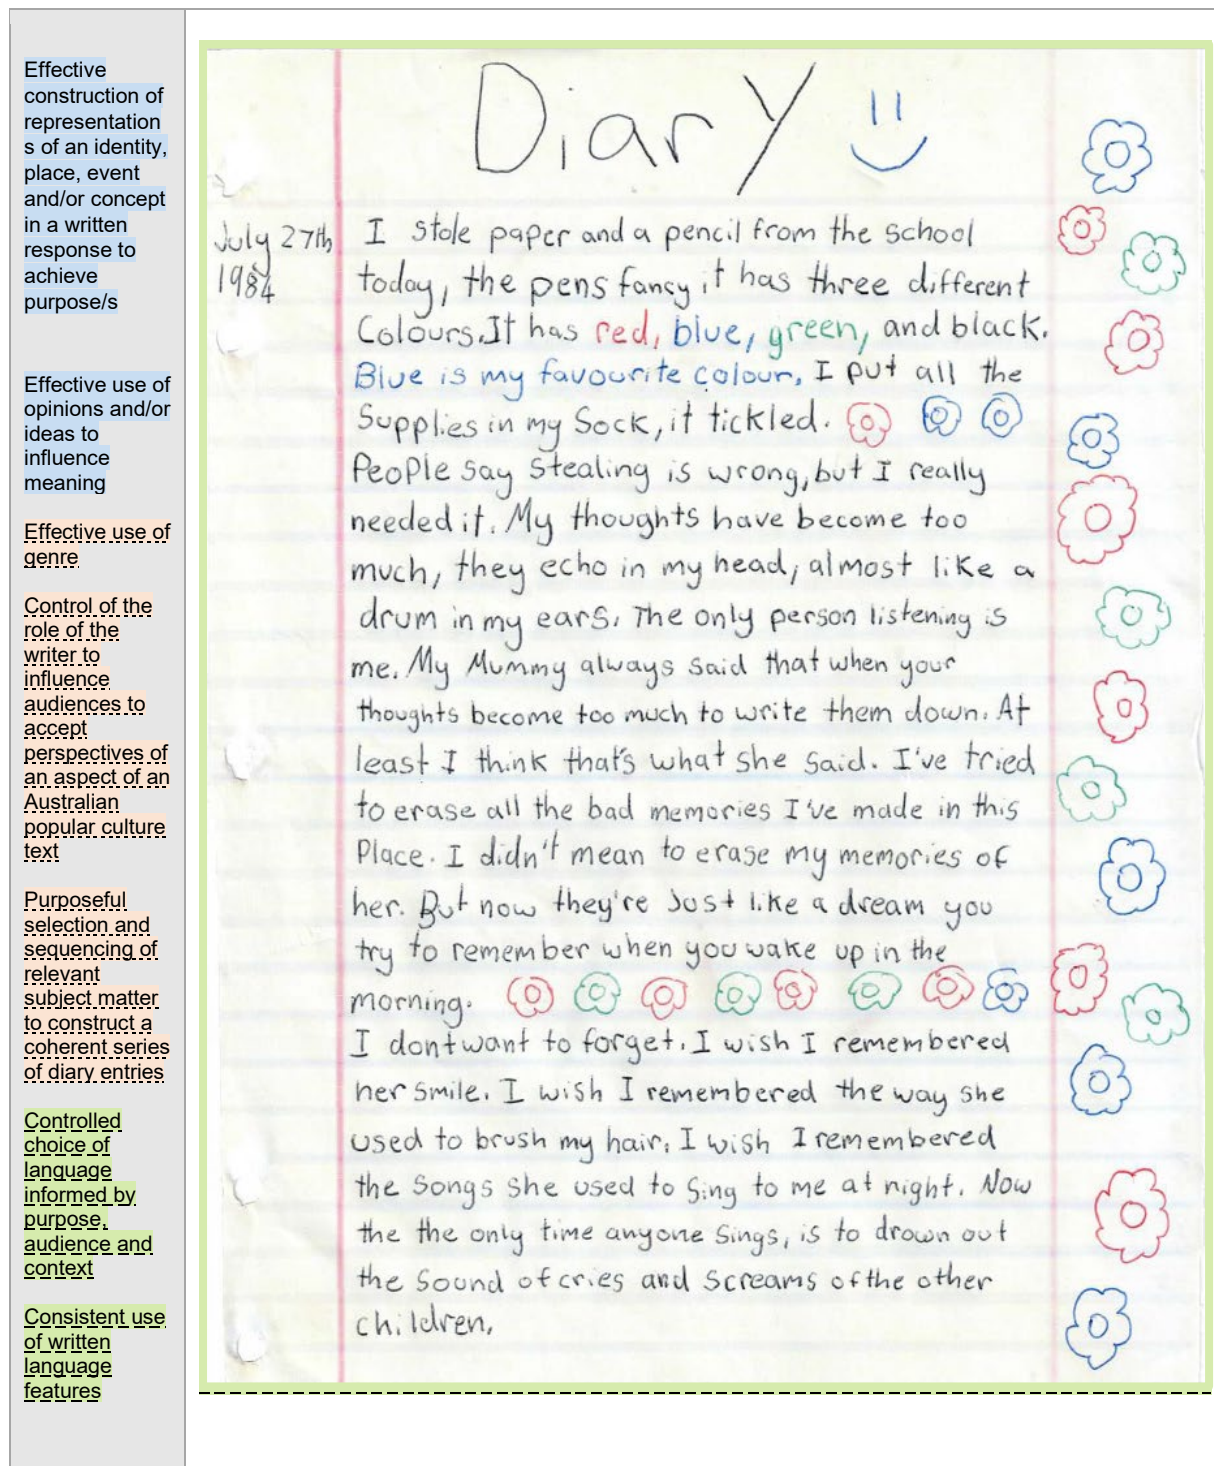 Effective
construction of
representation
s of an identity,
place, event
and/or concept
in a written
response to
achieve
purpose/s
Effective use of
opinions and/or
ideas to
influence
meaning
Effective use of
genre
Control of the
role of the
writer to
influence
audiences to
accept
perspectives of
an aspect of an
Australian
popular culture
text
Purposeful
selection and
sequencing of
relevant
subject matter
to construct a
coherent series
of diary entries
Controlled
choice of
language
informed by
purpose,
audience and
context
Consistent use
of written
language
features
Diary
July 27th
1984
I stole paper and a pencil from the school
today, the pens fancy it has three different
Colours. It has red, blue, green, and black.
Blue is my favourite colour. I put all the
Supplies in my Sock, it tickled.
People say Stealing is wrong, but I really
needed it. My thoughts have become too
much, they echo in my head, almost like a
drum in my ears. The only person listening is
me. My Mummy always said that when your
thoughts become too much to write them down. At
least I think that's what she said. I've tried
to erase all the bad memories I've made in this
Place. I didn't mean to erase my memories of
her. But now they're Just like a dream you
try to remember when you wake up in the
morning.
I dont want to forget. I wish I remembered
her smile. I wish I remembered the way she
used to brush my hair. I wish I remembered
the Songs She used to Sing to me at night. Now
the the only time anyone Sings, is to drown out
the Sound of cries and Screams of the other
children.